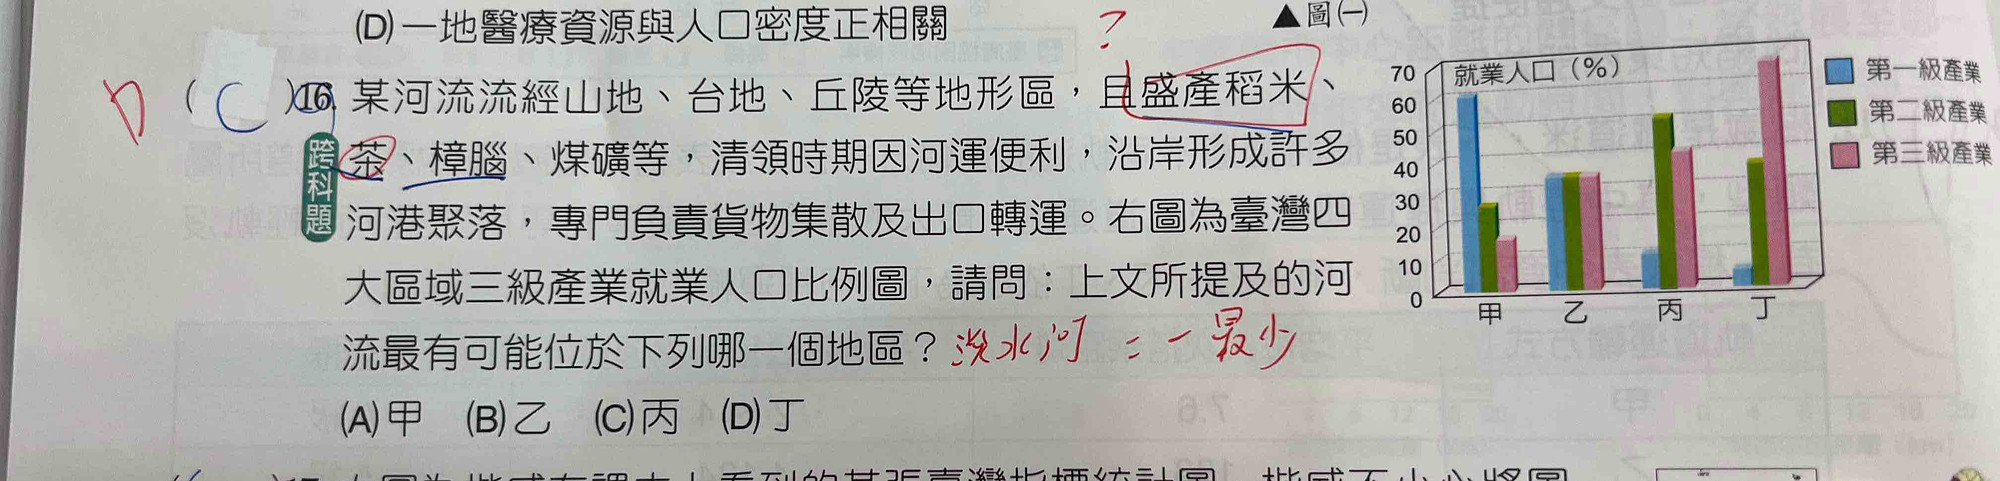 (D)一地醫療資源與人口密度正相關
?
▲圖(一)
D (C)16. 某河流流經山地、台地、丘陵等地形區，且盛產稻米、
跨科題
茶、樟腦、煤礦等，清領時期因河運便利，沿岸形成許多
河港聚落，專門負責貨物集散及出口轉運。右圖為臺灣四
大區域三級產業就業人口比例圖，請問：上文所提及的河
流最有可能位於下列哪一個地區？淡水河 = 一最少
(A)甲 (B)乙 (C)丙 (D)丁
就業人口（%）
70
60
50
40
30
20
10
0
甲 乙 丙 丁
第一級產業
第二級產業
第三級產業